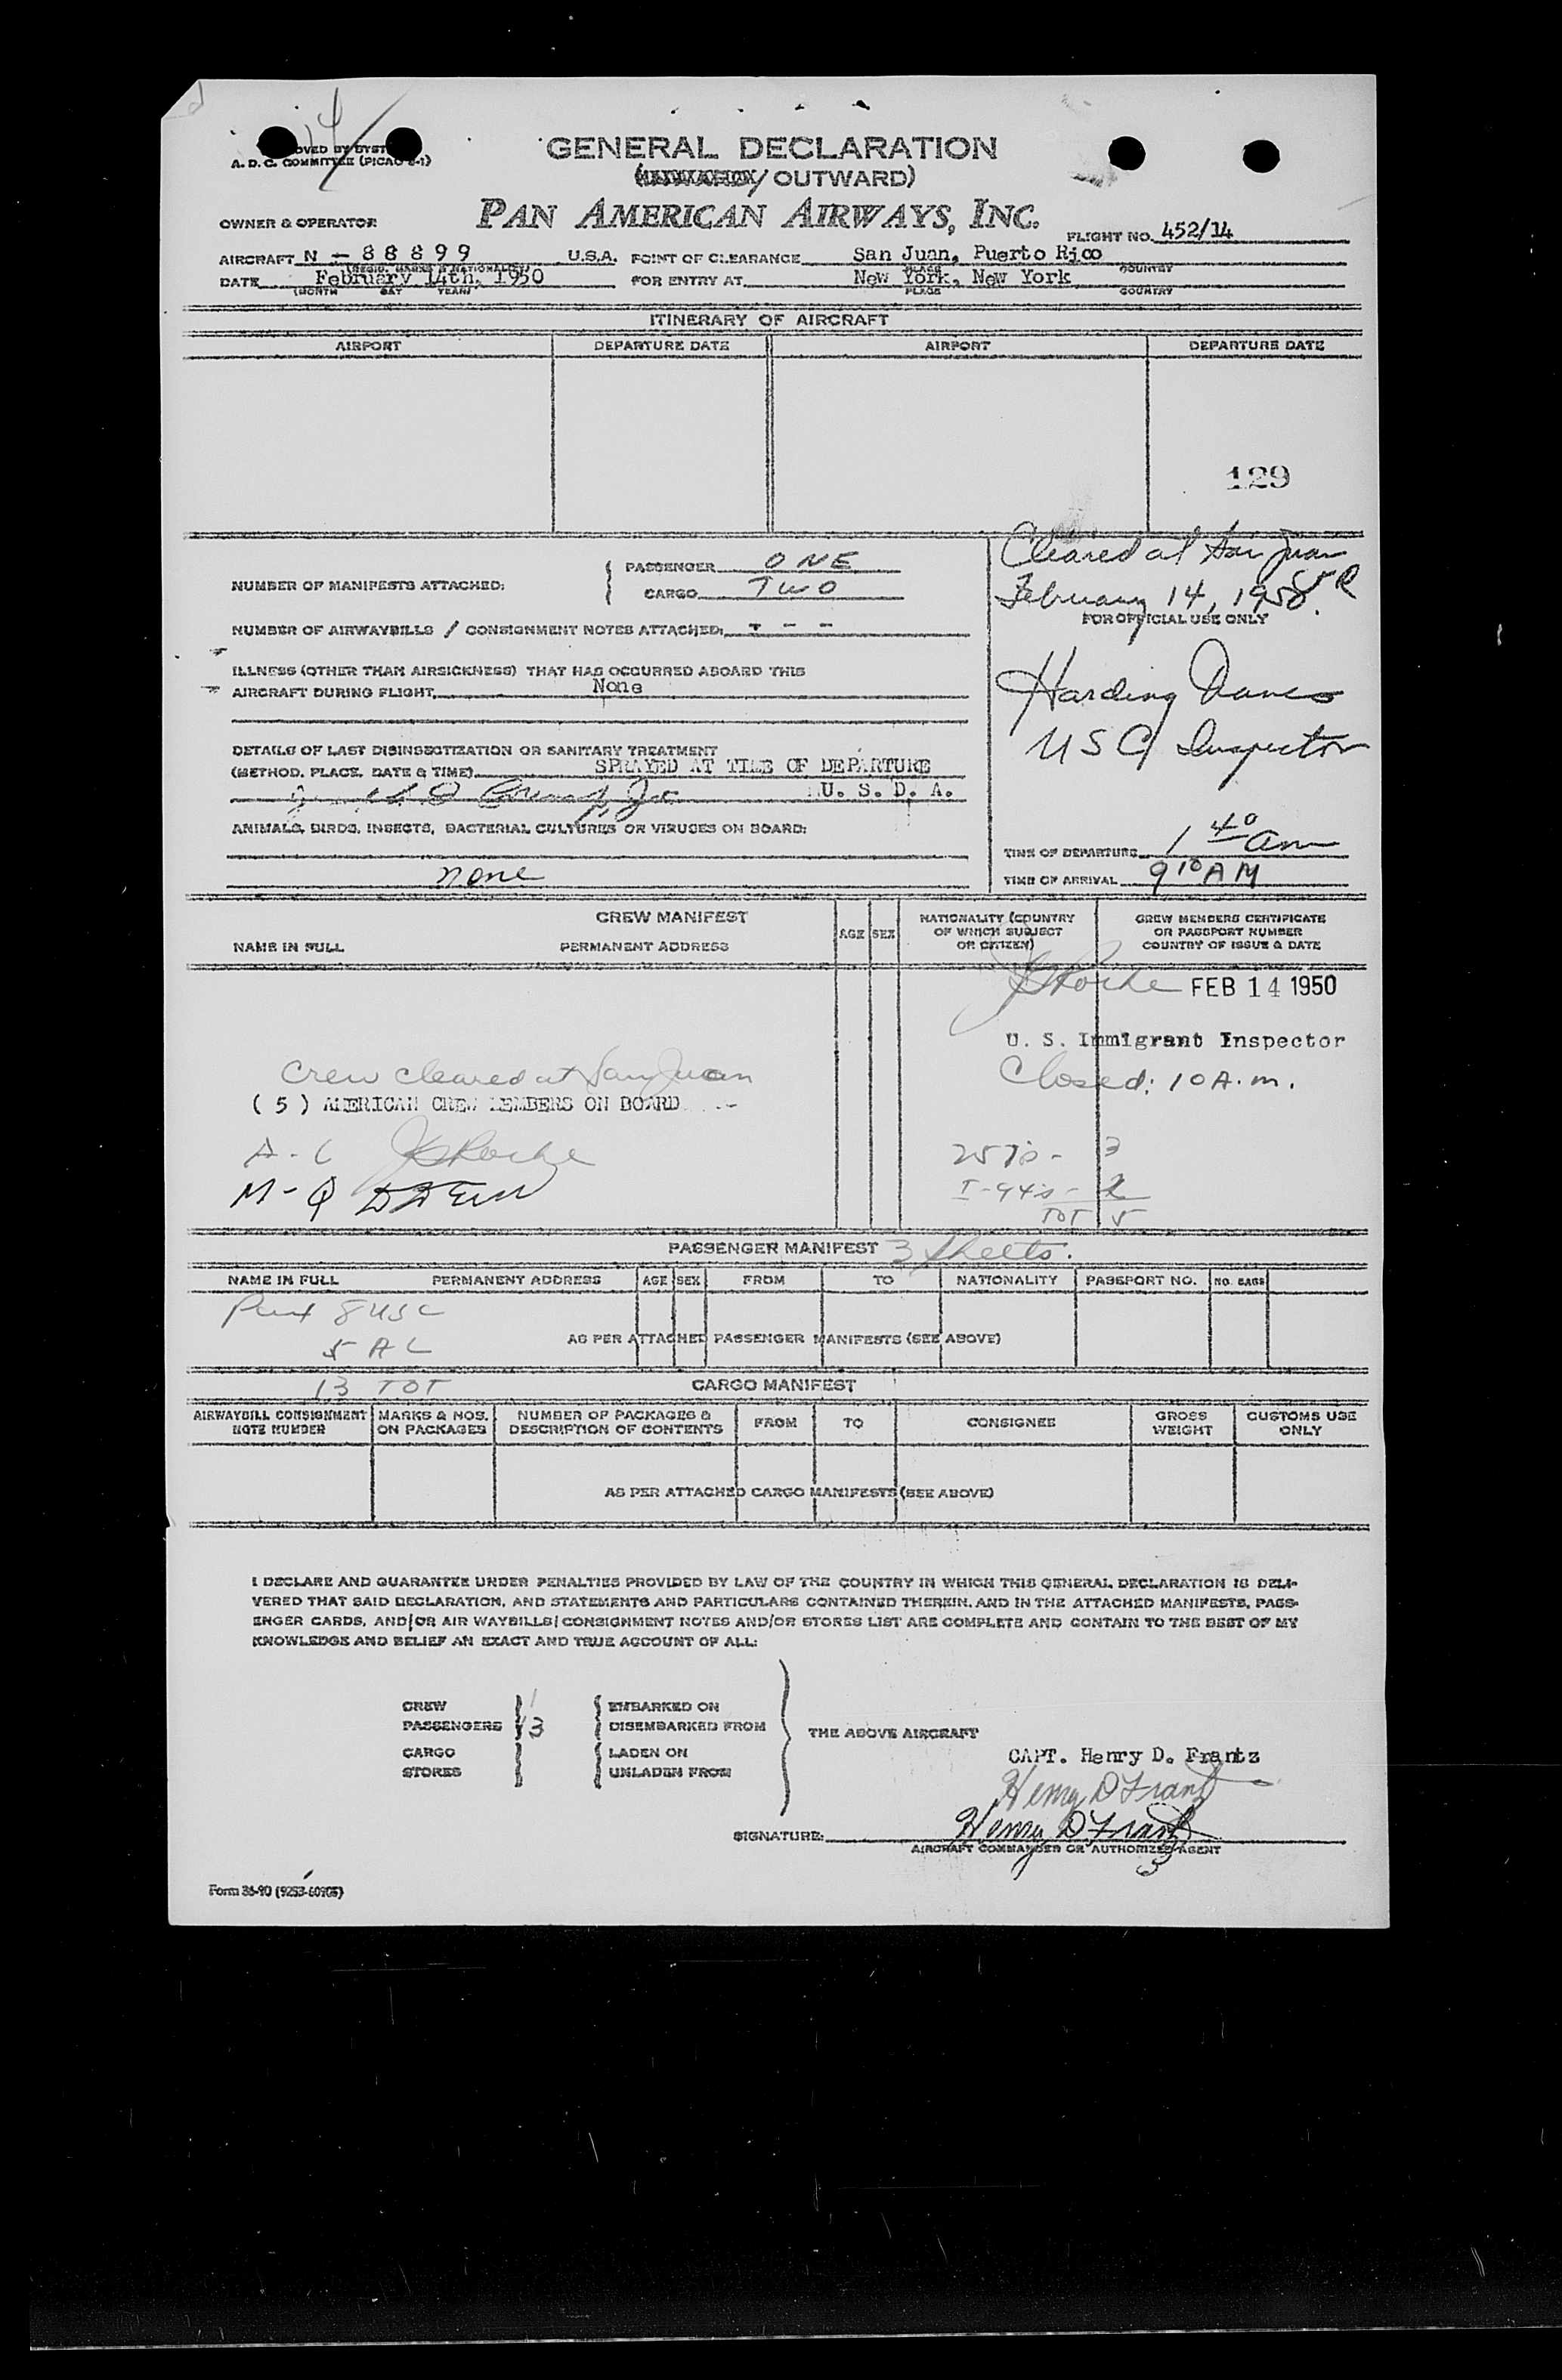 GENERAL DECLARATION
A. D. C. COMMITTEE (PICAO
/ OUTWARD)
OWNER & OPERATOR PAN AMERICAN AIRWAYS, INC. FLIGHT NO. 452/14
AIRCRAFT N - 88899 U.S.A. POINT OF CLEARANCE San Juan, Puerto Rico
(REGIS. MARKS & NATIONALITY) PLACE COUNTRY
DATE February 14th, 1950 FOR ENTRY AT New York, New York
(MONTH DAY YEAR) PLACE COUNTRY
ITINERARY OF AIRCRAFT
AIRPORT DEPARTURE DATE AIRPORT DEPARTURE DATE
129
Cleared at San Juan
February 14, 1950
NUMBER OF MANIFESTS ATTACHED: { PASSENGER ONE
CARGO TWO
FOR OFFICIAL USE ONLY
NUMBER OF AIRWAYBILLS / CONSIGNMENT NOTES ATTACHED: - - -
ILLNESS (OTHER THAN AIRSICKNESS) THAT HAS OCCURRED ABOARD THIS
AIRCRAFT DURING FLIGHT None
Harding
USC Inspector
DETAILS OF LAST DISINSECTIZATION OR SANITARY TREATMENT
(METHOD, PLACE, DATE & TIME) SPRAYED AT TIME OF DEPARTURE
Jr. U. S. D. A.
ANIMALS, BIRDS, INSECTS, BACTERIAL CULTURES OR VIRUSES ON BOARD:
none
TIME OF DEPARTURE 1 40 am
TIME OF ARRIVAL 9 10 AM
CREW MANIFEST
NAME IN FULL PERMANENT ADDRESS AGE SEX NATIONALITY (COUNTRY OF WHICH SUBJECT OR CITIZEN) CREW MEMBERS CERTIFICATE OR PASSPORT NUMBER COUNTRY OF ISSUE & DATE
FEB 14 1950
U. S. Immigrant Inspector
Crew cleared at San Juan
Closed: 10 A.m.
( 5 ) AMERICAN CREW MEMBERS ON BOARD
A - C
M - Q
257's - 3
I-94's - 2
TOT 5
PASSENGER MANIFEST 3 sheets.
NAME IN FULL PERMANENT ADDRESS AGE SEX FROM TO NATIONALITY PASSPORT NO. NO. BAGS
8 USC
5 AL
AS PER ATTACHED PASSENGER MANIFESTS (SEE ABOVE)
13 TOT
CARGO MANIFEST
AIRWAYBILL CONSIGNMENT NOTE NUMBER MARKS & NOS. ON PACKAGES NUMBER OF PACKAGES & DESCRIPTION OF CONTENTS FROM TO CONSIGNEE GROSS WEIGHT CUSTOMS USE ONLY
AS PER ATTACHED CARGO MANIFESTS (SEE ABOVE)
I DECLARE AND GUARANTEE UNDER PENALTIES PROVIDED BY LAW OF THE COUNTRY IN WHICH THIS GENERAL DECLARATION IS DELI-
VERED THAT SAID DECLARATION, AND STATEMENTS AND PARTICULARS CONTAINED THEREIN, AND IN THE ATTACHED MANIFESTS, PASS-
ENGER CARDS, AND/OR AIR WAYBILLS/ CONSIGNMENT NOTES AND/OR STORES LIST ARE COMPLETE AND CONTAIN TO THE BEST OF MY
KNOWLEDGE AND BELIEF AN EXACT AND TRUE ACCOUNT OF ALL:
CREW EMBARKED ON
PASSENGERS 13 DISEMBARKED FROM THE ABOVE AIRCRAFT
CARGO LADEN ON
STORES UNLADEN FROM
CAPT. Henry D. Frantz
Henry D Frantz
SIGNATURE: Henry D. Frantz
AIRCRAFT COMMANDER OR AUTHORIZED AGENT
Form 36-90 (9253-60905)